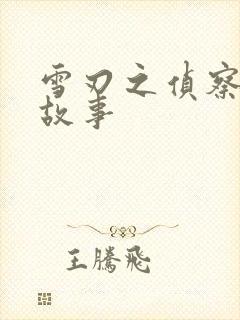 雪刃之偵察
故事
王騰飛